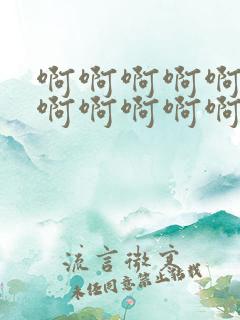 啊啊啊啊啊
啊啊啊啊啊
流言微寒
未经同意禁止转载